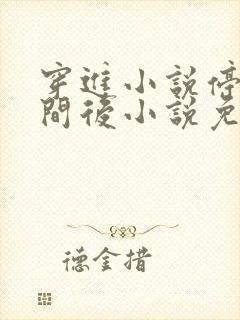 穿進小說停
間後小說免
德金措